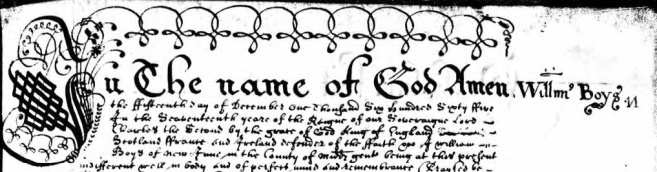 In The name of God Amen. Willms Boys
the ffifteenth day of December One Thousand Six hundred Sixty ffive
In the Seaventeenth yeare of the Raigne of our Soveraigne Lord
Charles the Second by the grace of God King of England
Scotland ffrance and Ireland defender of the ffaith &c I William
Boys of New Inne in the County of Midd gent being at this present
indifferent well in body and of perfect mind and remembrance (Praysed be